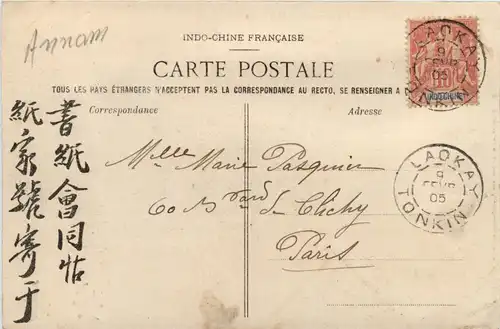 Annam
INDO-CHINE FRANÇAISE
CARTE POSTALE
TOUS LES PAYS ÉTRANGERS N'ACCEPTENT PAS LA CORRESPONDANCE AU RECTO, SE RENSEIGNER A
Correspondance
Adresse
LAOKAY
9
05
INDO-CHINE
LAOKAY
9
FEVR
05
TONKIN
Mlle Marie Pasquier
60 Bard de Clichy
Paris
書紙會同帖
紙家號寄于